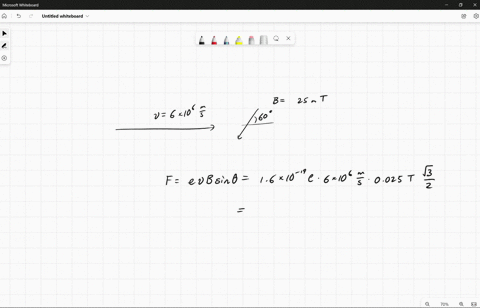 Microsoft Whiteboard
Untitled whiteboard
B = 25 m T
v = 6×10⁶ m/s
60°
F = evB sinθ = 1.6×10⁻¹⁹ C · 6×10⁶ m/s · 0.025 T √3/2
=
70%